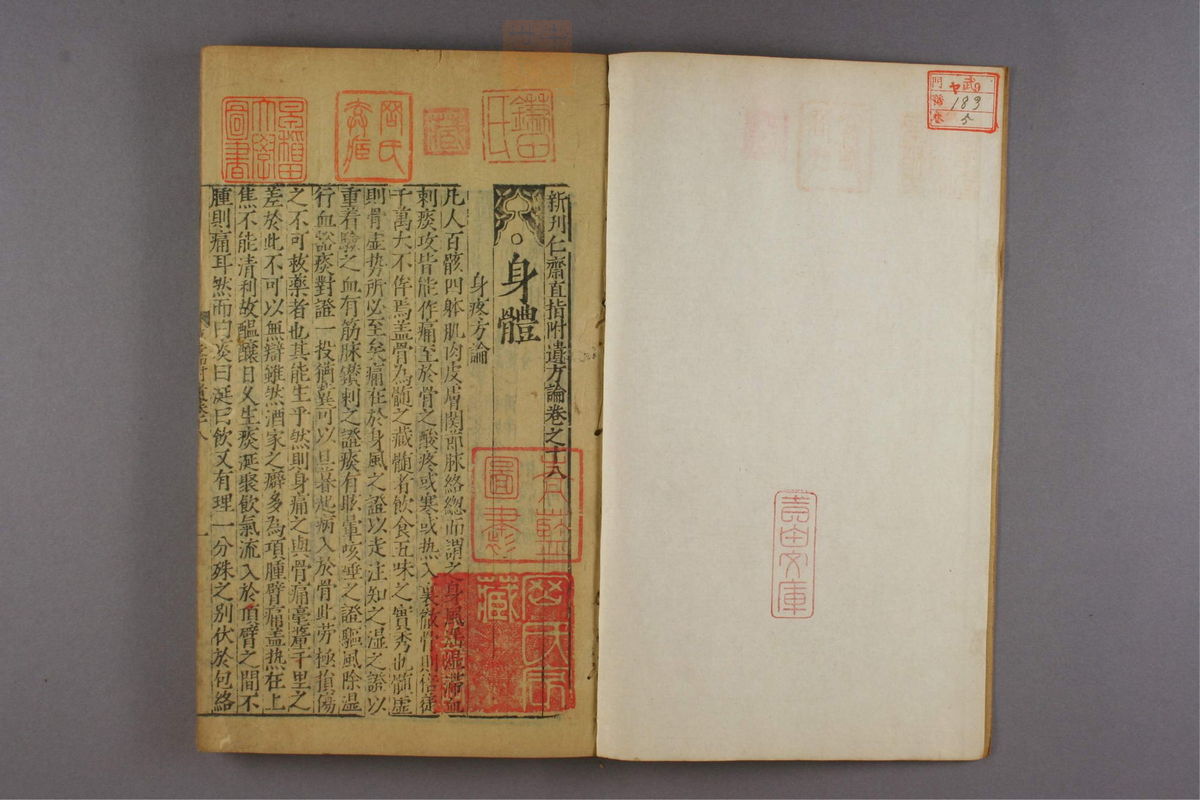 新刋仁齋直指附遺方論卷之十八
身體
身疼方論
凡人百骸四躰肌肉皮膚関節脉絡總而謂之身風
血
刺痰攻皆能作痛至於骨之酸疼或寒或热入裏徹骨則倍徙
千萬大不侔焉盖骨為髓之藏髓者飲食五味之實秀也髓虚
則骨虚势所必至矣痛在於身風之證以走注知之湿之證以
重着驗之血有筋脉鑚刺之證痰有眩暈咳唾之證驅風除湿
行血豁痰對證一投猶異可以
起病入於骨此劳極損傷
之不可救藥者也其能生乎然則身痛之與骨痛毫釐千里之
差於此不可以無辯雖然酒家之癖多為項腫臂痛盖热在上
焦不能清利故醖釀日久生痰涎聚飲氣流入於項臂之間不
腫則痛耳然而曰痰曰涎曰飲又有理一分殊之别伏於包絡
一
圖書
藏
青田文庫
183
5